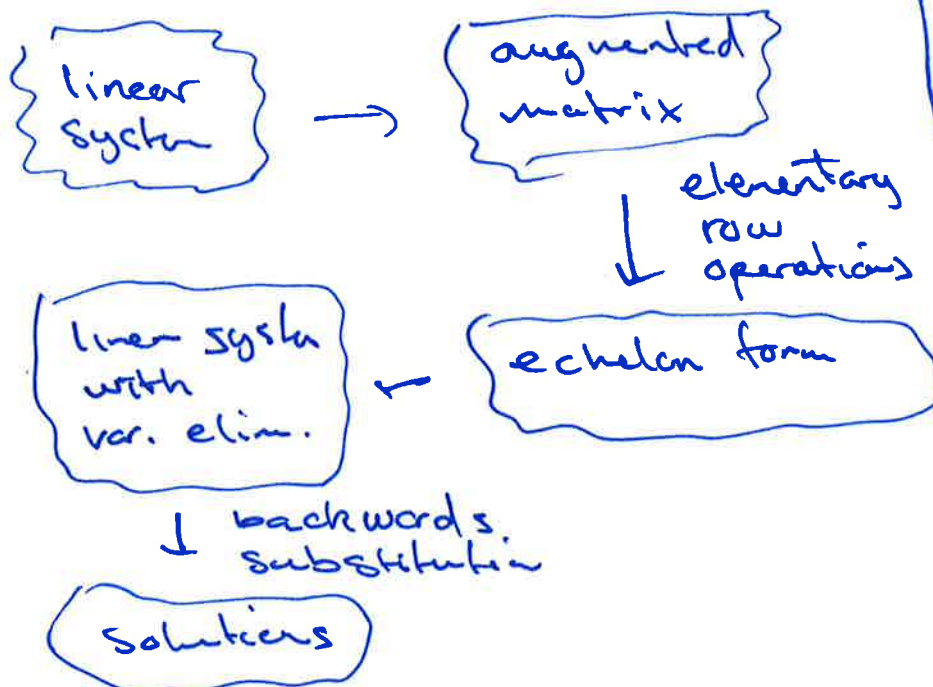 linear
system
augmented
matrix
elementary
row
operations
echelon form
linear system
with
var. elim.
backwards
substitution
solutions